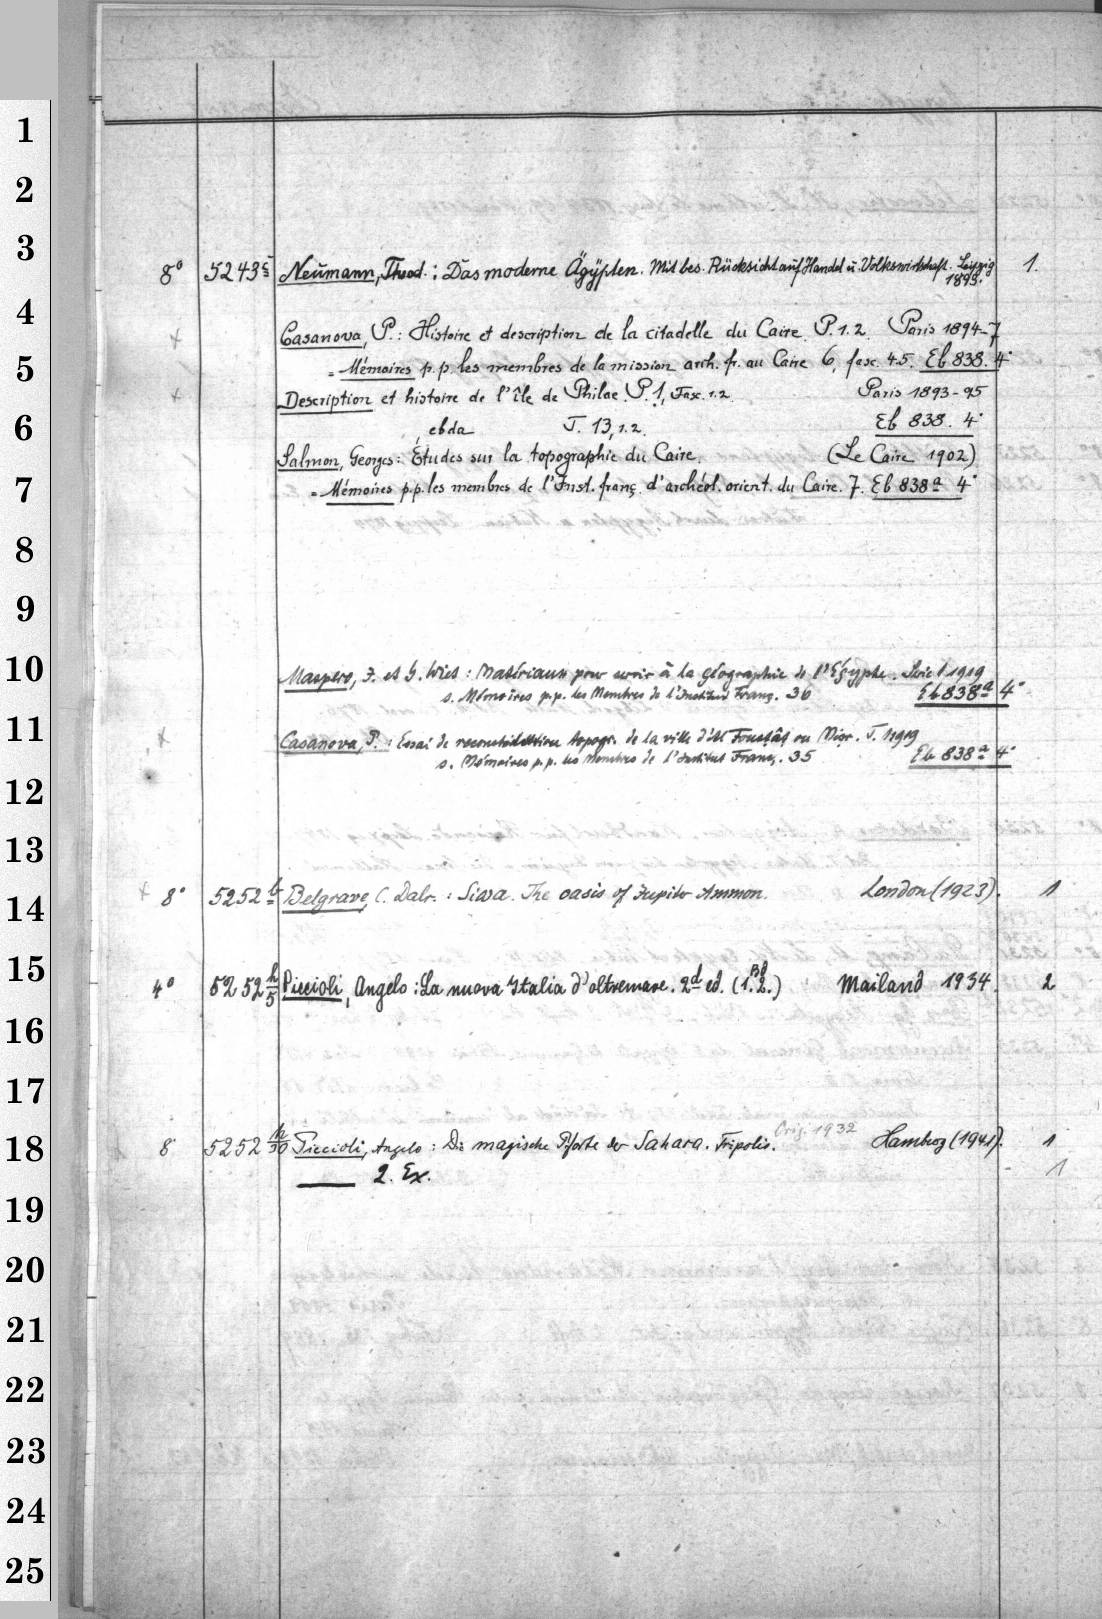 1
2
3
8° 5243 5 Neumann, Theod.: Das moderne Ägypten. Mit bes. Rücksicht auf Handel u. Volkswirtschaft. Leipzig 1.
1893.
4
x Casanova, P.: Histoire et description de la citadelle du Caire. P. 1. 2. Paris 1894-7
5
= Mémoires p. p. les membres de la mission arch. fr. au Caire 6, fasc. 4.5. Eb 838. 4°
x Description et histoire de l'île de Philae. P. 1, Fasc. 1.2. Paris 1893-95
6
ebda T. 13, 1.2. Eb 838. 4°
Salmon, Georges: Études sur la topographie du Caire. (Le Caire 1902)
7
= Mémoires p.p. les membres de l'Inst. franç. d'archéol. orient. du Caire. 7. Eb 838a 4°
8
9
10
Maspero, J. et G. Wiet: Matériaux pour servir à la géographie de l'Égypte. Série 1 1919
s. Mémoires p.p. les Membres de l'Institut Franç. 36 Eb 838a 4°
11
x Casanova, P.: Essai de reconstitution topogr. de la ville d'Al Foustât ou Misr. T. 1 1919
s. Mémoires p.p. les Membres de l'Institut Franç. 35 Eb 838a 4°
12
13
14
x 8° 5252 b Belgrave, C. Dalr.: Siwa. The oasis of Jupiter Ammon. London (1923). 1
15
4° 5252 h/5 Piccioli, Angelo: La nuova Italia d'oltremare. 2d ed. (Bd 1. 2.) Mailand 1934. 2
16
17
Orig. 1932
18
8 5252 h/30 Piccioli, Angelo: Die magische Pforte der Sahara. Tripolis. Hamburg (1941). 1
—— 2. Ex. 1
19
20
21
22
23
24
25